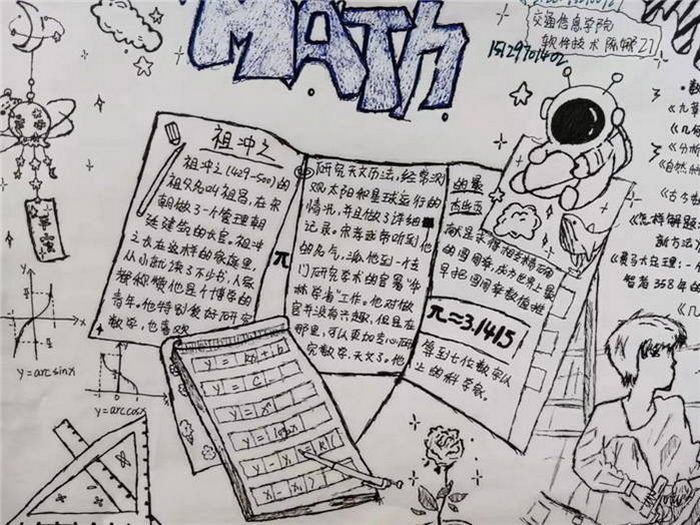 MATH
交通信息学院
软件技术 陈娜 27
15129701402
祖冲之
祖冲之(429-500)的
祖父名叫祖昌,在宋
朝做了一个管理朝
廷建筑的长官。祖冲
之长在这样的家庭里,
从小就读了不少书,人家
都称赞他是个博学的
青年。他特别爱好研究
数学,也喜欢
π
研究天文历法,经常观
观太阳和星球运行的
情况,并且做了详细
记录。宋孝武帝听到他
的名气,派他到一个
门研究学术的官署"华
林学省"工作。他对做
官并没有兴趣,但是在
那里,可以更加专心研
究数学、天文了。他
的最
杰出
献是求得相当精确
的圆周率,成为世界上最
早把圆周率数值推
π≈3.1415
算到七位数字以
上的科学家。
y=kx+b
y=c
y=arcsinx
y=arccosx
数
《九章
《几何
《分析
《自然
《古今
《怎样解题:
新方法
《费马大定理:一
智者358年的